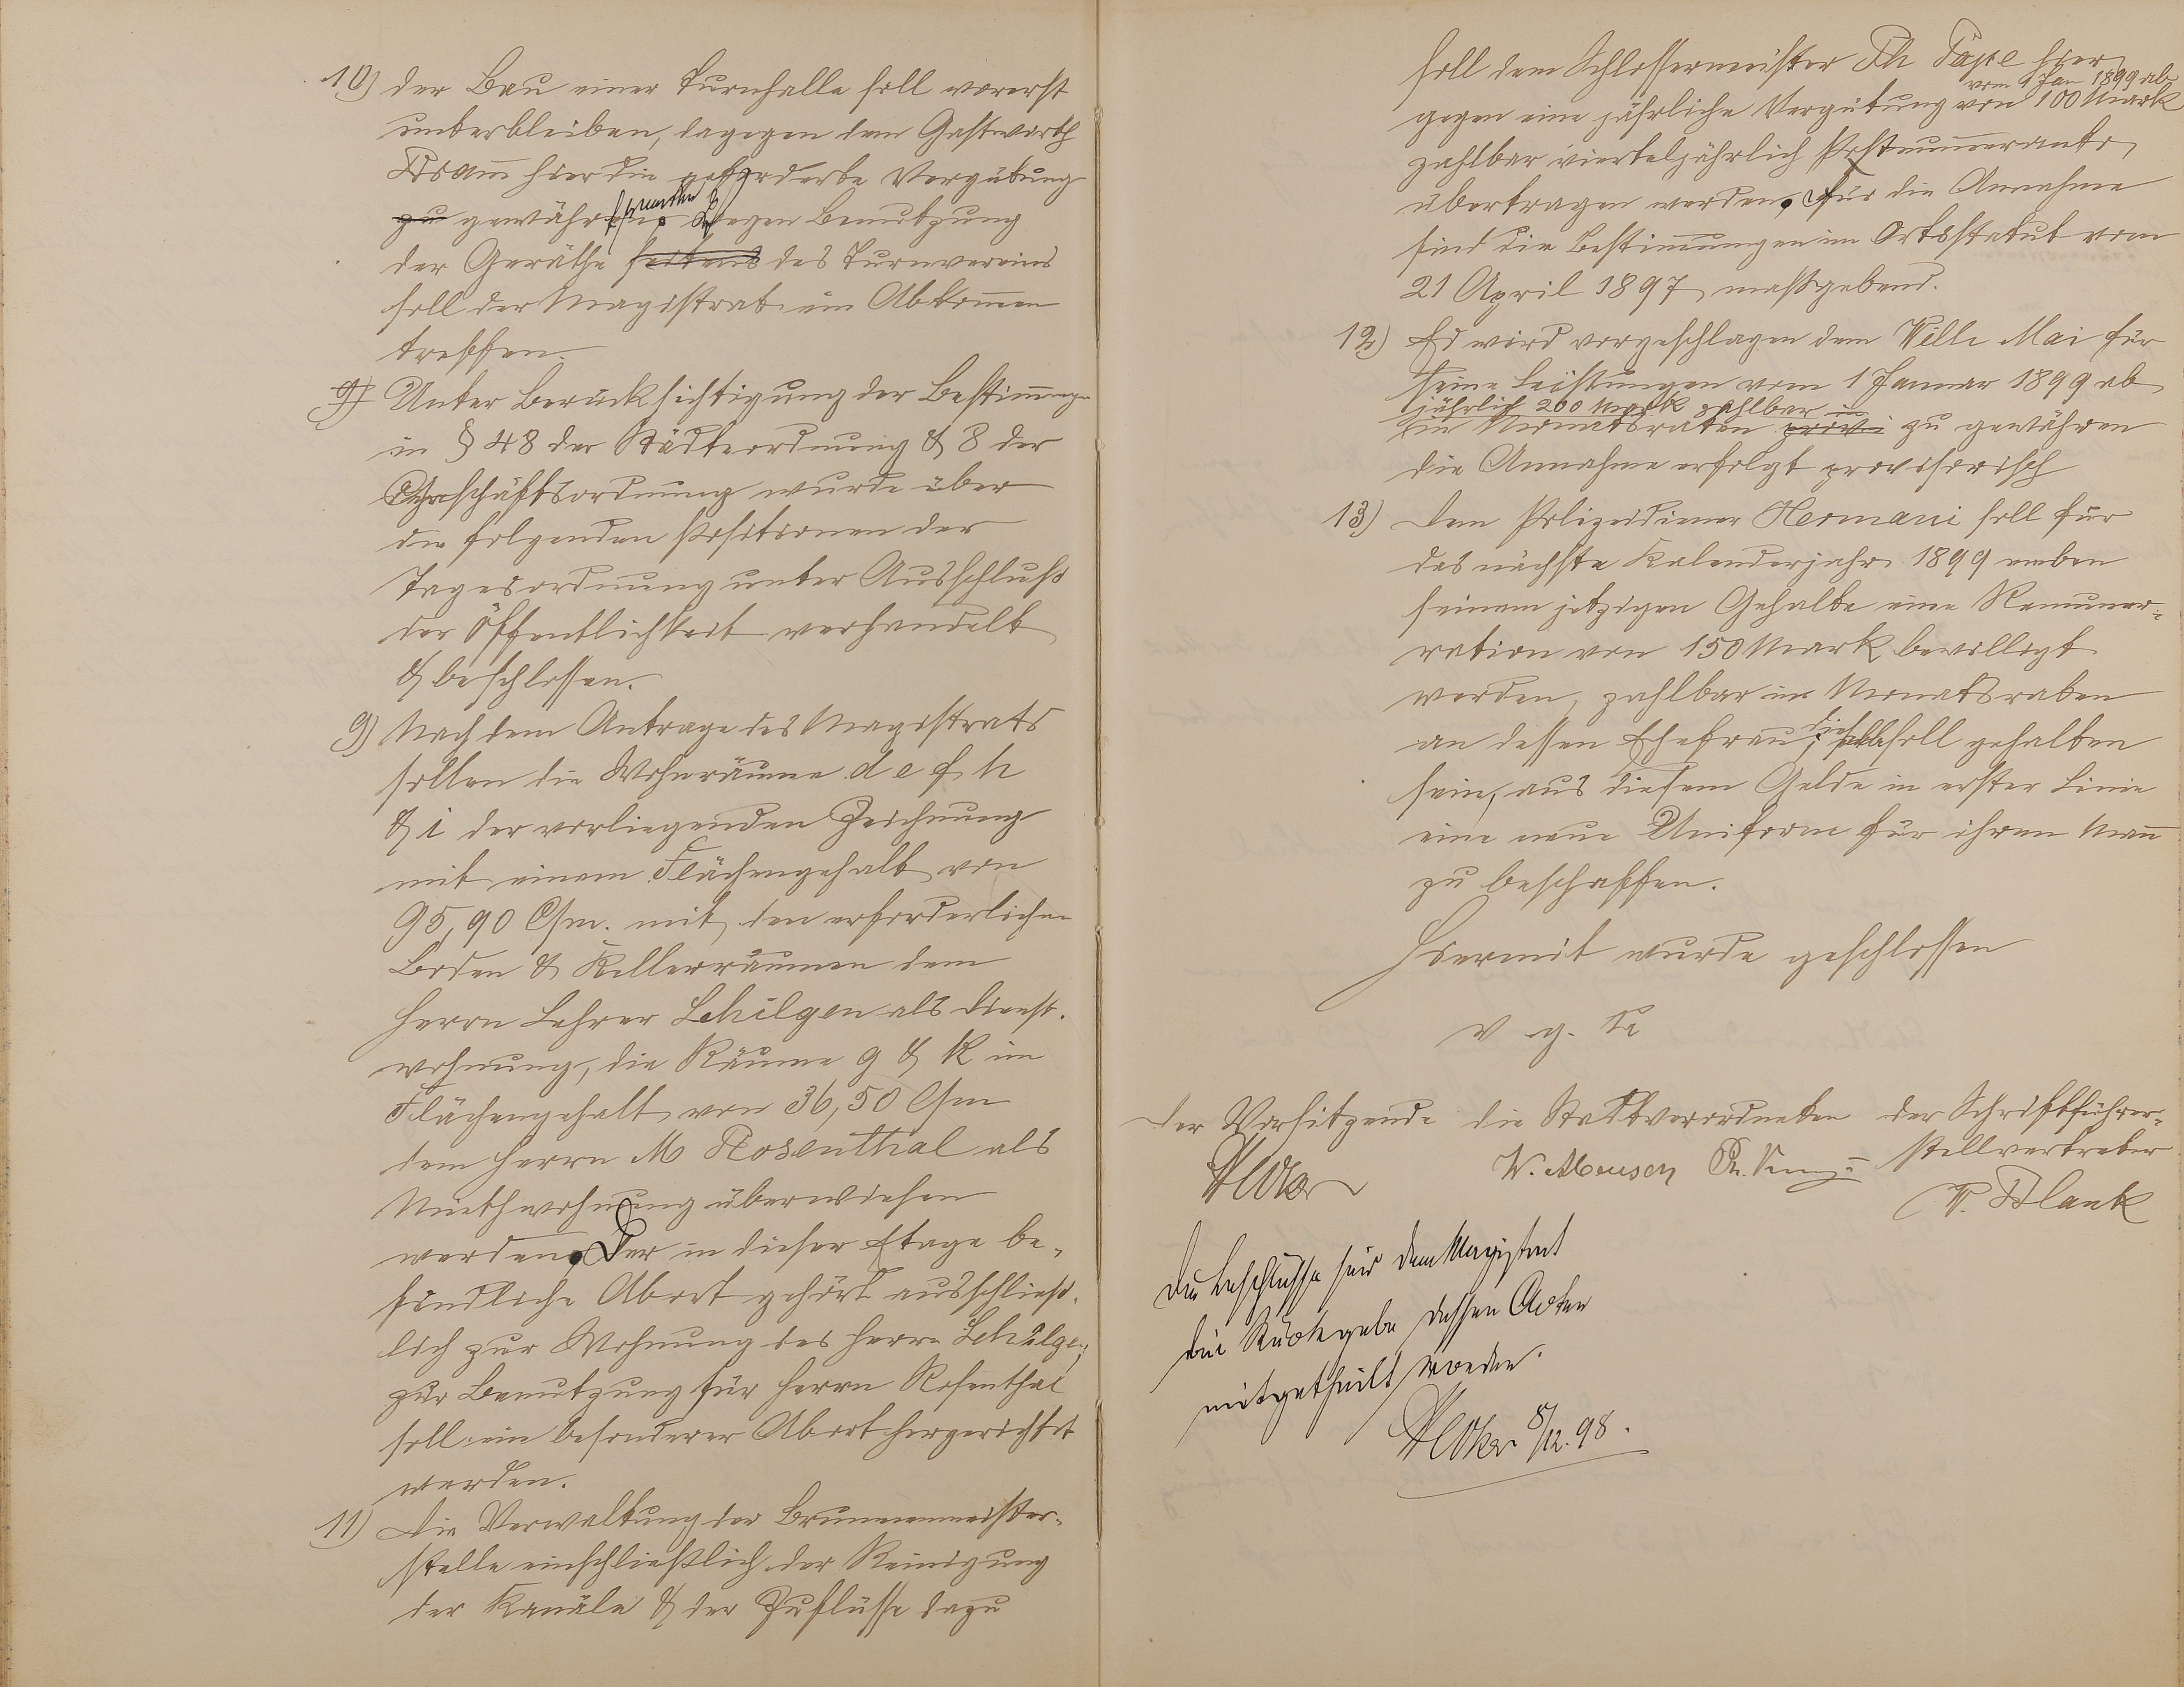 10) der Bau einer Turnhalle soll vorerst
unterbleiben, dagegen dem Gastwirth
hier die geforderte Vergütung
zu gewährt werden. Wegen Benutzung
der Geräthe seitens des Turnvereins
soll der Magistrat ein Abkommen
treffen.
9) Unter Berücksichtigung der Bestimmungen
in § 48 der Städteordnung & 8 der
Geschäftsordnung wurde über
die folgenden Positionen der
Tagesordnung unter Ausschluß
der Öffentlichkeit verhandelt
& beschlossen.
9) Nach dem Antrage des Magistrats
sollen die Wohnräume d e f h
& i der vorliegenden Zeichnung
mit einem Flächengehalt von
95,90 Qm. mit den erforderlichen
Boden & Kellerräumen dem
Herrn Lehrer Schilgen als Dienst-
wohnung, die Räume g & k im
Flächengehalt von 36,50 Qm
dem Herrn M Rosenthal als
Miethwohnung überwiesen
werden. Der in dieser Etage be-
findliche Abort gehört ausschließ-
lich zur Wohnung des Herrn Schilgen;
zur Benutzung für Herrn Rosenthal
soll ein besonderer Abort hergerichtet
werden.
11) Die Verwaltung der Brunnenmeister-
stelle einschließlich der Reinigung
der Kanäle & der Zuflüsse dazu
soll dem Schlossermeister Th Pape hier
vom 1 Jan 1899 ab
gegen eine jährliche Vergütung von 100 Mark
zahlbar vierteljährlich Postnumerando
übertragen werden. Für die Annahme
sind die Bestimmungen im Ortsstatut vom
21 April 1897 maßgebend.
12) Es wird vorgeschlagen dem Wille Mai für
seine Leistungen vom 1 Januar 1899 ab
jährlich 200 Mark zahlbar in
Monatsraten provi zu gewähren
die Annahme erfolgt provisorisch
13) Dem Polizeidiener Hermani soll für
das nächste Kalenderjahr 1899 neben
seinem jetzigen Gehalte eine Remune-
ration von 150 Mark bewilligt
werden, zahlbar in Monatsraten
an dessen Ehefrau; dieselbe soll gehalten
sein, aus diesem Gelde in erster Linie
eine neue Uniform für ihren Mann
zu beschaffen.
Hiermit wurde geschlossen
v g. u
Der Vorsitzende die Stadtverordneten der Schriftführer-
stellvertreter
W.
P. Blank
Die Beschlüsse sind dem Magistrat
bei Rückgabe dessen Acten
mitgetheilt worden.
8/12. 98.